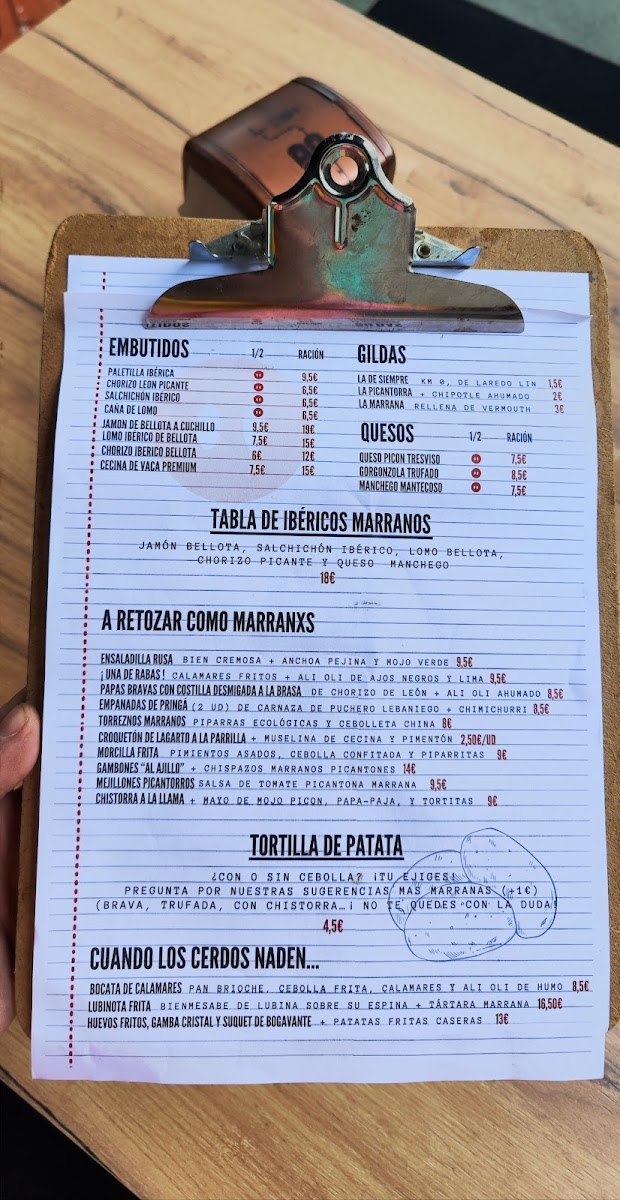 EMBUTIDOS 1/2 RACIÓN
PALETILLA IBÉRICA 9,5€
CHORIZO LEON PICANTE 6,5€
SALCHICHÓN IBÉRICO 6,5€
CAÑA DE LOMO 6,5€
JAMON DE BELLOTA A CUCHILLO 9,5€ 19€
LOMO IBERICO DE BELLOTA 7,5€ 15€
CHORIZO IBERICO BELLOTA 6€ 12€
CECINA DE VACA PREMIUM 7,5€ 15€
GILDAS
LA DE SIEMPRE KM 0, DE LAREDO LIN 1,5€
LA PICANTORRA + CHIPOTLE AHUMADO 2€
LA MARRANA RELLENA DE VERMOUTH 3€
QUESOS 1/2 RACIÓN
QUESO PICON TRESVISO 7,5€
GORGONZOLA TRUFADO 8,5€
MANCHEGO MANTECOSO 7,5€
TABLA DE IBÉRICOS MARRANOS
JAMÓN BELLOTA, SALCHICHÓN IBÉRICO, LOMO BELLOTA,
CHORIZO PICANTE Y QUESO MANCHEGO
18€
A RETOZAR COMO MARRANXS
ENSALADILLA RUSA BIEN CREMOSA + ANCHOA PEJINA Y MOJO VERDE 9,5€
¡UNA DE RABAS! CALAMARES FRITOS + ALI OLI DE AJOS NEGROS Y LIMA 9,5€
PAPAS BRAVAS CON COSTILLA DESMIGADA A LA BRASA DE CHORIZO DE LEÓN + ALI OLI AHUMADO 8,5€
EMPANADAS DE PRINGÁ (2 UD) DE CARNAZA DE PUCHERO LEBANIEGO + CHIMICHURRI 8,5€
TORREZNOS MARRANOS PIPARRAS ECOLÓGICAS Y CEBOLLETA CHINA 8€
CROQUETÓN DE LAGARTO A LA PARRILLA + MUSELINA DE CECINA Y PIMENTÓN 2,50€/UD
MORCILLA FRITA PIMIENTOS ASADOS, CEBOLLA CONFITADA Y PIPARRITAS 9€
GAMBONES "AL AJILLO" + CHISPAZOS MARRANOS PICANTONES 14€
MEJILLONES PICANTORROS SALSA DE TOMATE PICANTONA MARRANA 9,5€
CHISTORRA A LA LLAMA + MAYO DE MOJO PICON, PAPA-PAJA, Y TORTITAS 9€
TORTILLA DE PATATA
¿CON O SIN CEBOLLA? ¡TU EJIGES!
PREGUNTA POR NUESTRAS SUGERENCIAS MAS MARRANAS (+1€)
(BRAVA, TRUFADA, CON CHISTORRA…¡ NO TE QUEDES CON LA DUDA!
4,5€
CUANDO LOS CERDOS NADEN...
BOCATA DE CALAMARES PAN BRIOCHE, CEBOLLA FRITA, CALAMARES Y ALI OLI DE HUMO 8,5€
LUBINOTA FRITA BIENMESABE DE LUBINA SOBRE SU ESPINA + TÁRTARA MARRANA 16,50€
HUEVOS FRITOS, GAMBA CRISTAL Y SUQUET DE BOGAVANTE + PATATAS FRITAS CASERAS 13€